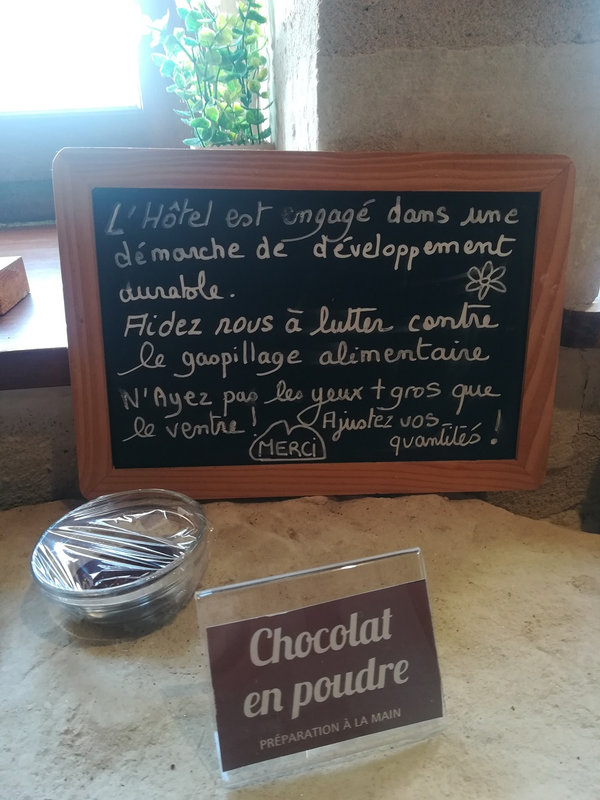 L'Hôtel est engagé dans une
démarche de développement
durable.
Aidez nous à lutter contre
le gaspillage alimentaire
N'Ayez pas les yeux + gros que
le ventre ! Ajustez vos
MERCI quantités !
Chocolat
en poudre
PRÉPARATION À LA MAIN